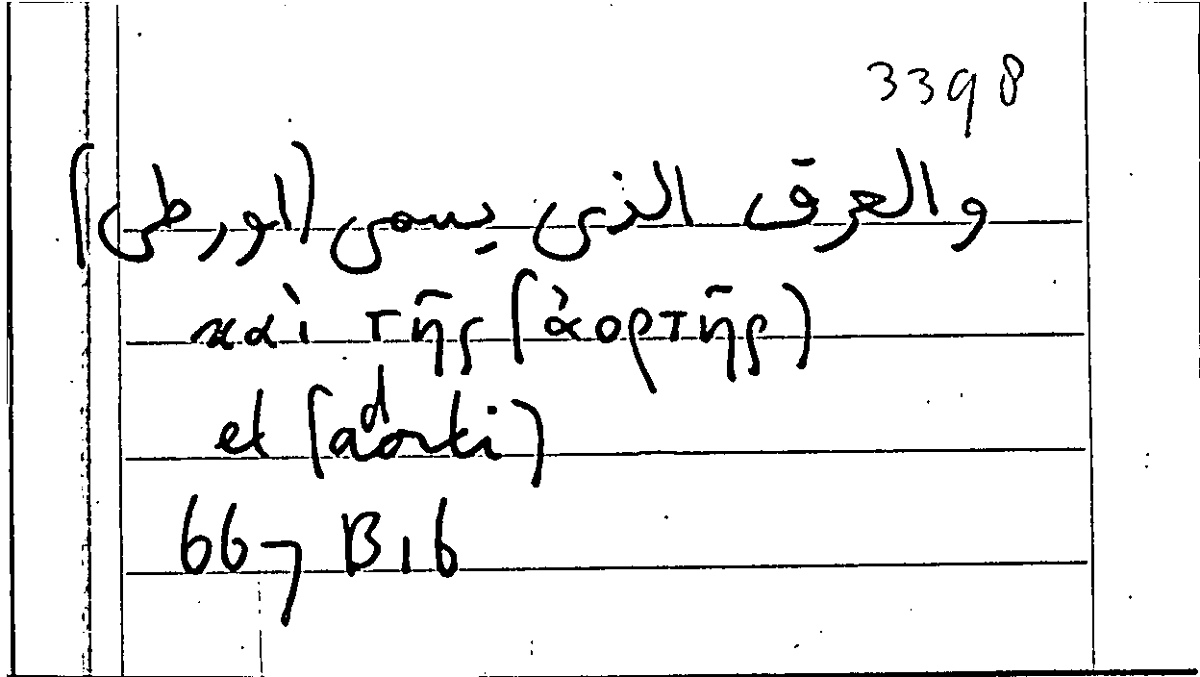 3398
والعرق الذى يسمى (اورطى)
καὶ τῆς (ἀορτῆς)
et (adorti)
667 B16